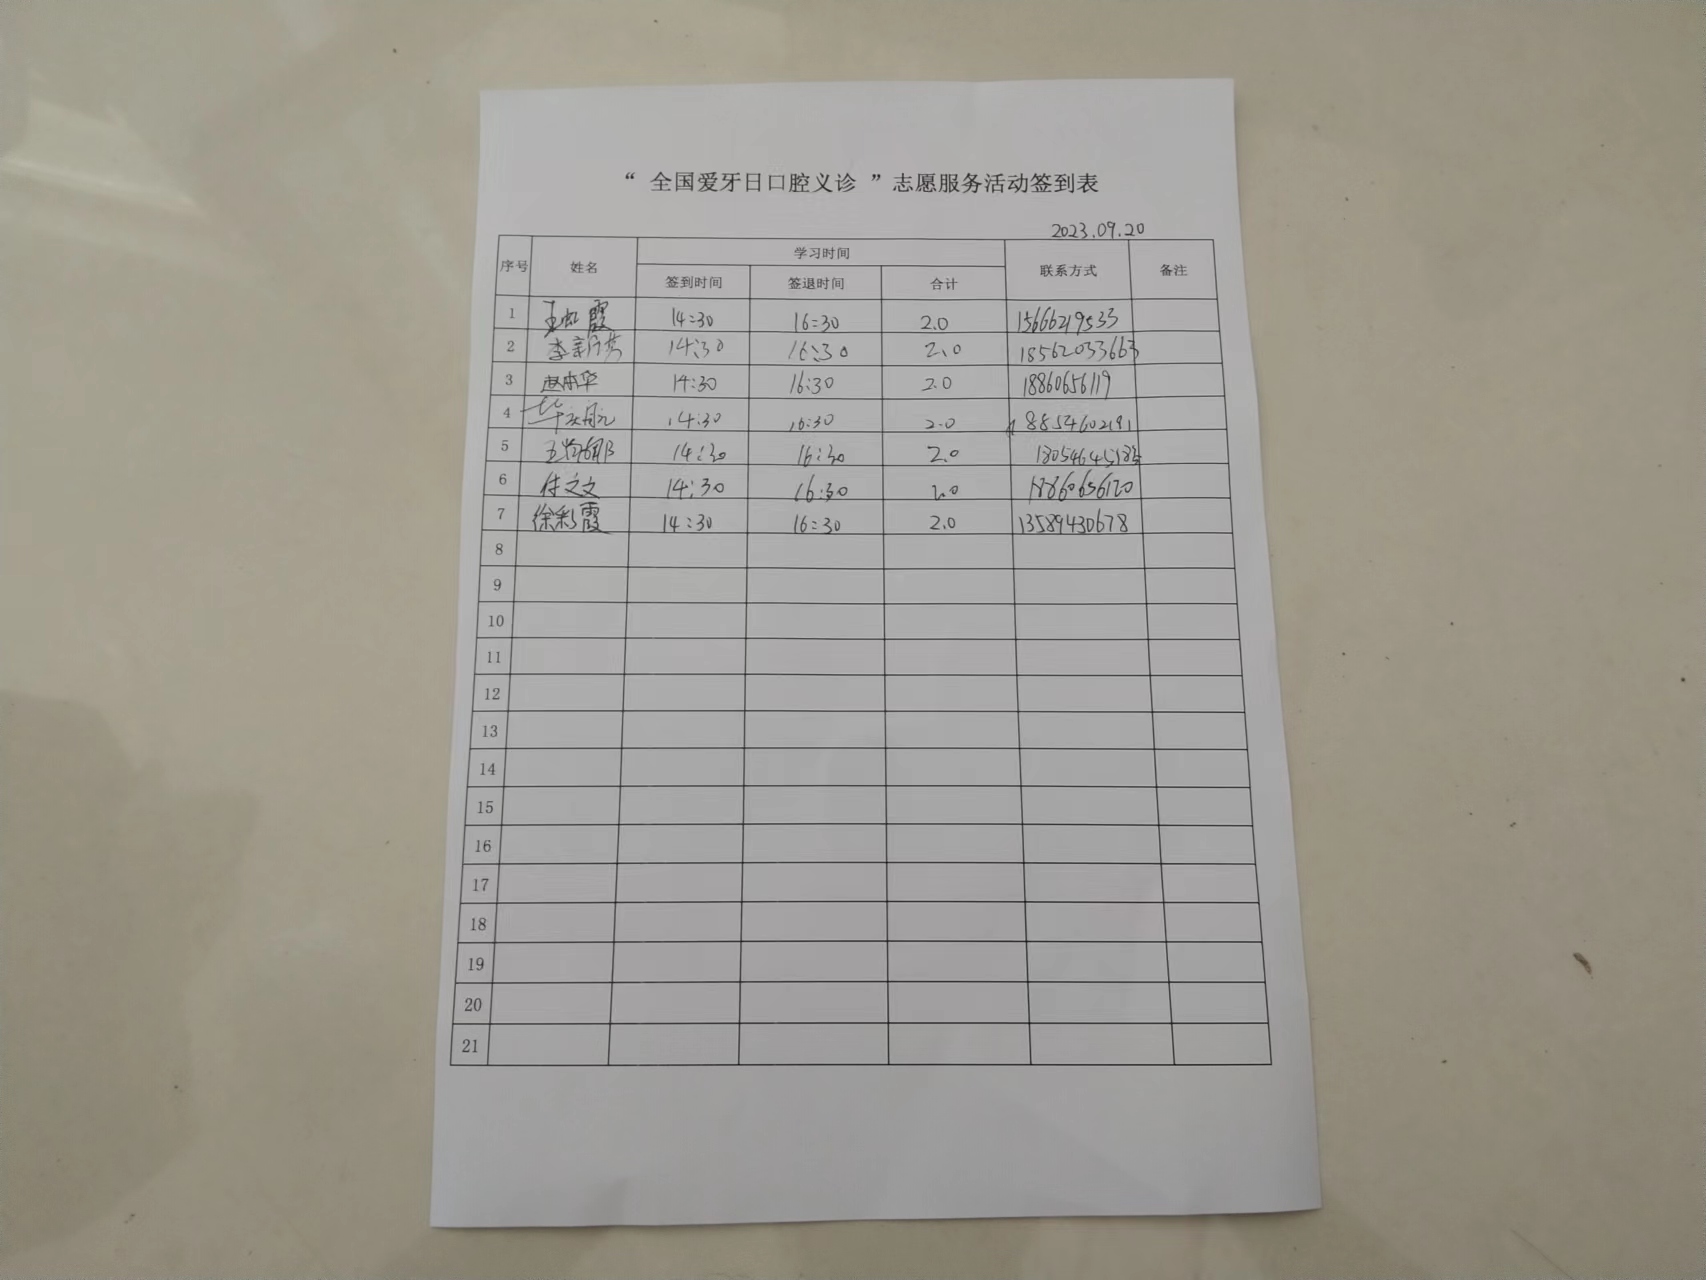 “ 全国爱牙日口腔义诊 ”志愿服务活动签到表
2023.09.20
序号 姓名 学习时间 联系方式 备注
签到时间 签退时间 合计
1 王虹霞 14:30 16:30 2.0 15666219533
2 李新芳 14:30 16:30 2.0 18562033663
3 赵本华 14:30 16:30 2.0 18860656119
4 14:30 16:30 2.0 18854602191
5 王 14:30 16:30 2.0 18054645183
6 付文文 14:30 16:30 2.0 18860656120
7 徐彩霞 14:30 16:30 2.0 13589430678
8
9
10
11
12
13
14
15
16
17
18
19
20
21